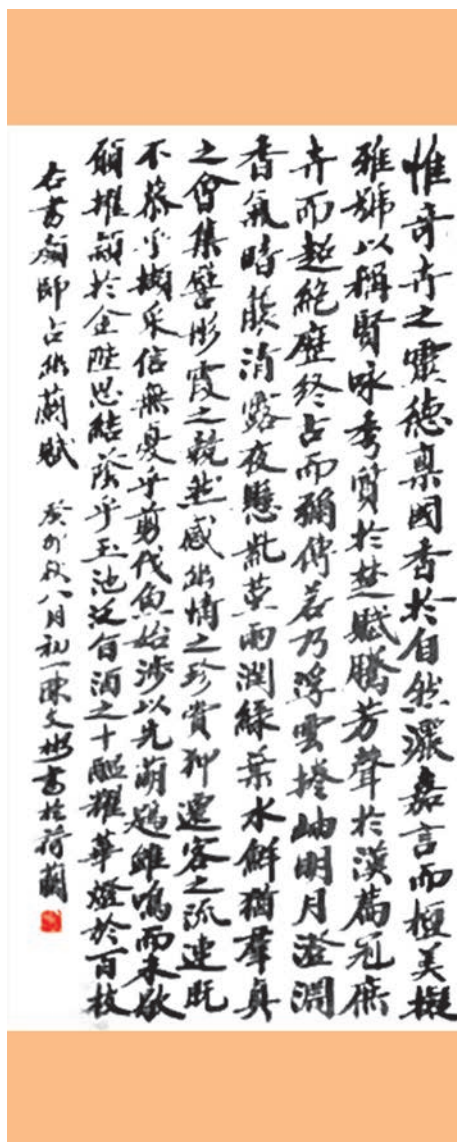 惟奇卉之靈德稟國香於自然灑嘉言而擅美擬
雅號以稱賢咏秀質於楚賦騰芳聲於漢篇冠庶
卉而超絕歷終古而彌傳若乃浮雲捲岫明月澄澗
香氣時襲清露夜懸紫莖雨潤綠葉水鮮猶羣真
之會集譬彤霞之競然感幽情之珍賞狎遷客之流連既
不慕乎擷采信無憂乎剪伐魚始涉以先萌鶗雖鳴而未歇
願擢穎於金陛思結蔭乎玉池泛旨酒之十醞耀華燈於百枝
右書顏師古幽蘭賦 癸卯秋八月初一陳文彬書於荷蘭